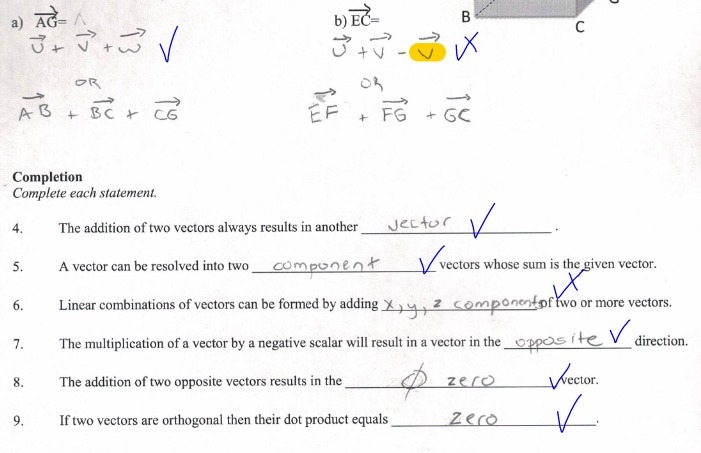 B
C
a) AG=
b) EC=
U + V + W
U + V - V
OR
OR
AB + BC + CG
EF + FG + GC
Completion
Complete each statement.
4. The addition of two vectors always results in another vector.
5. A vector can be resolved into two component vectors whose sum is the given vector.
6. Linear combinations of vectors can be formed by adding x, y, z components of two or more vectors.
7. The multiplication of a vector by a negative scalar will result in a vector in the opposite direction.
8. The addition of two opposite vectors results in the zero vector.
9. If two vectors are orthogonal then their dot product equals zero.